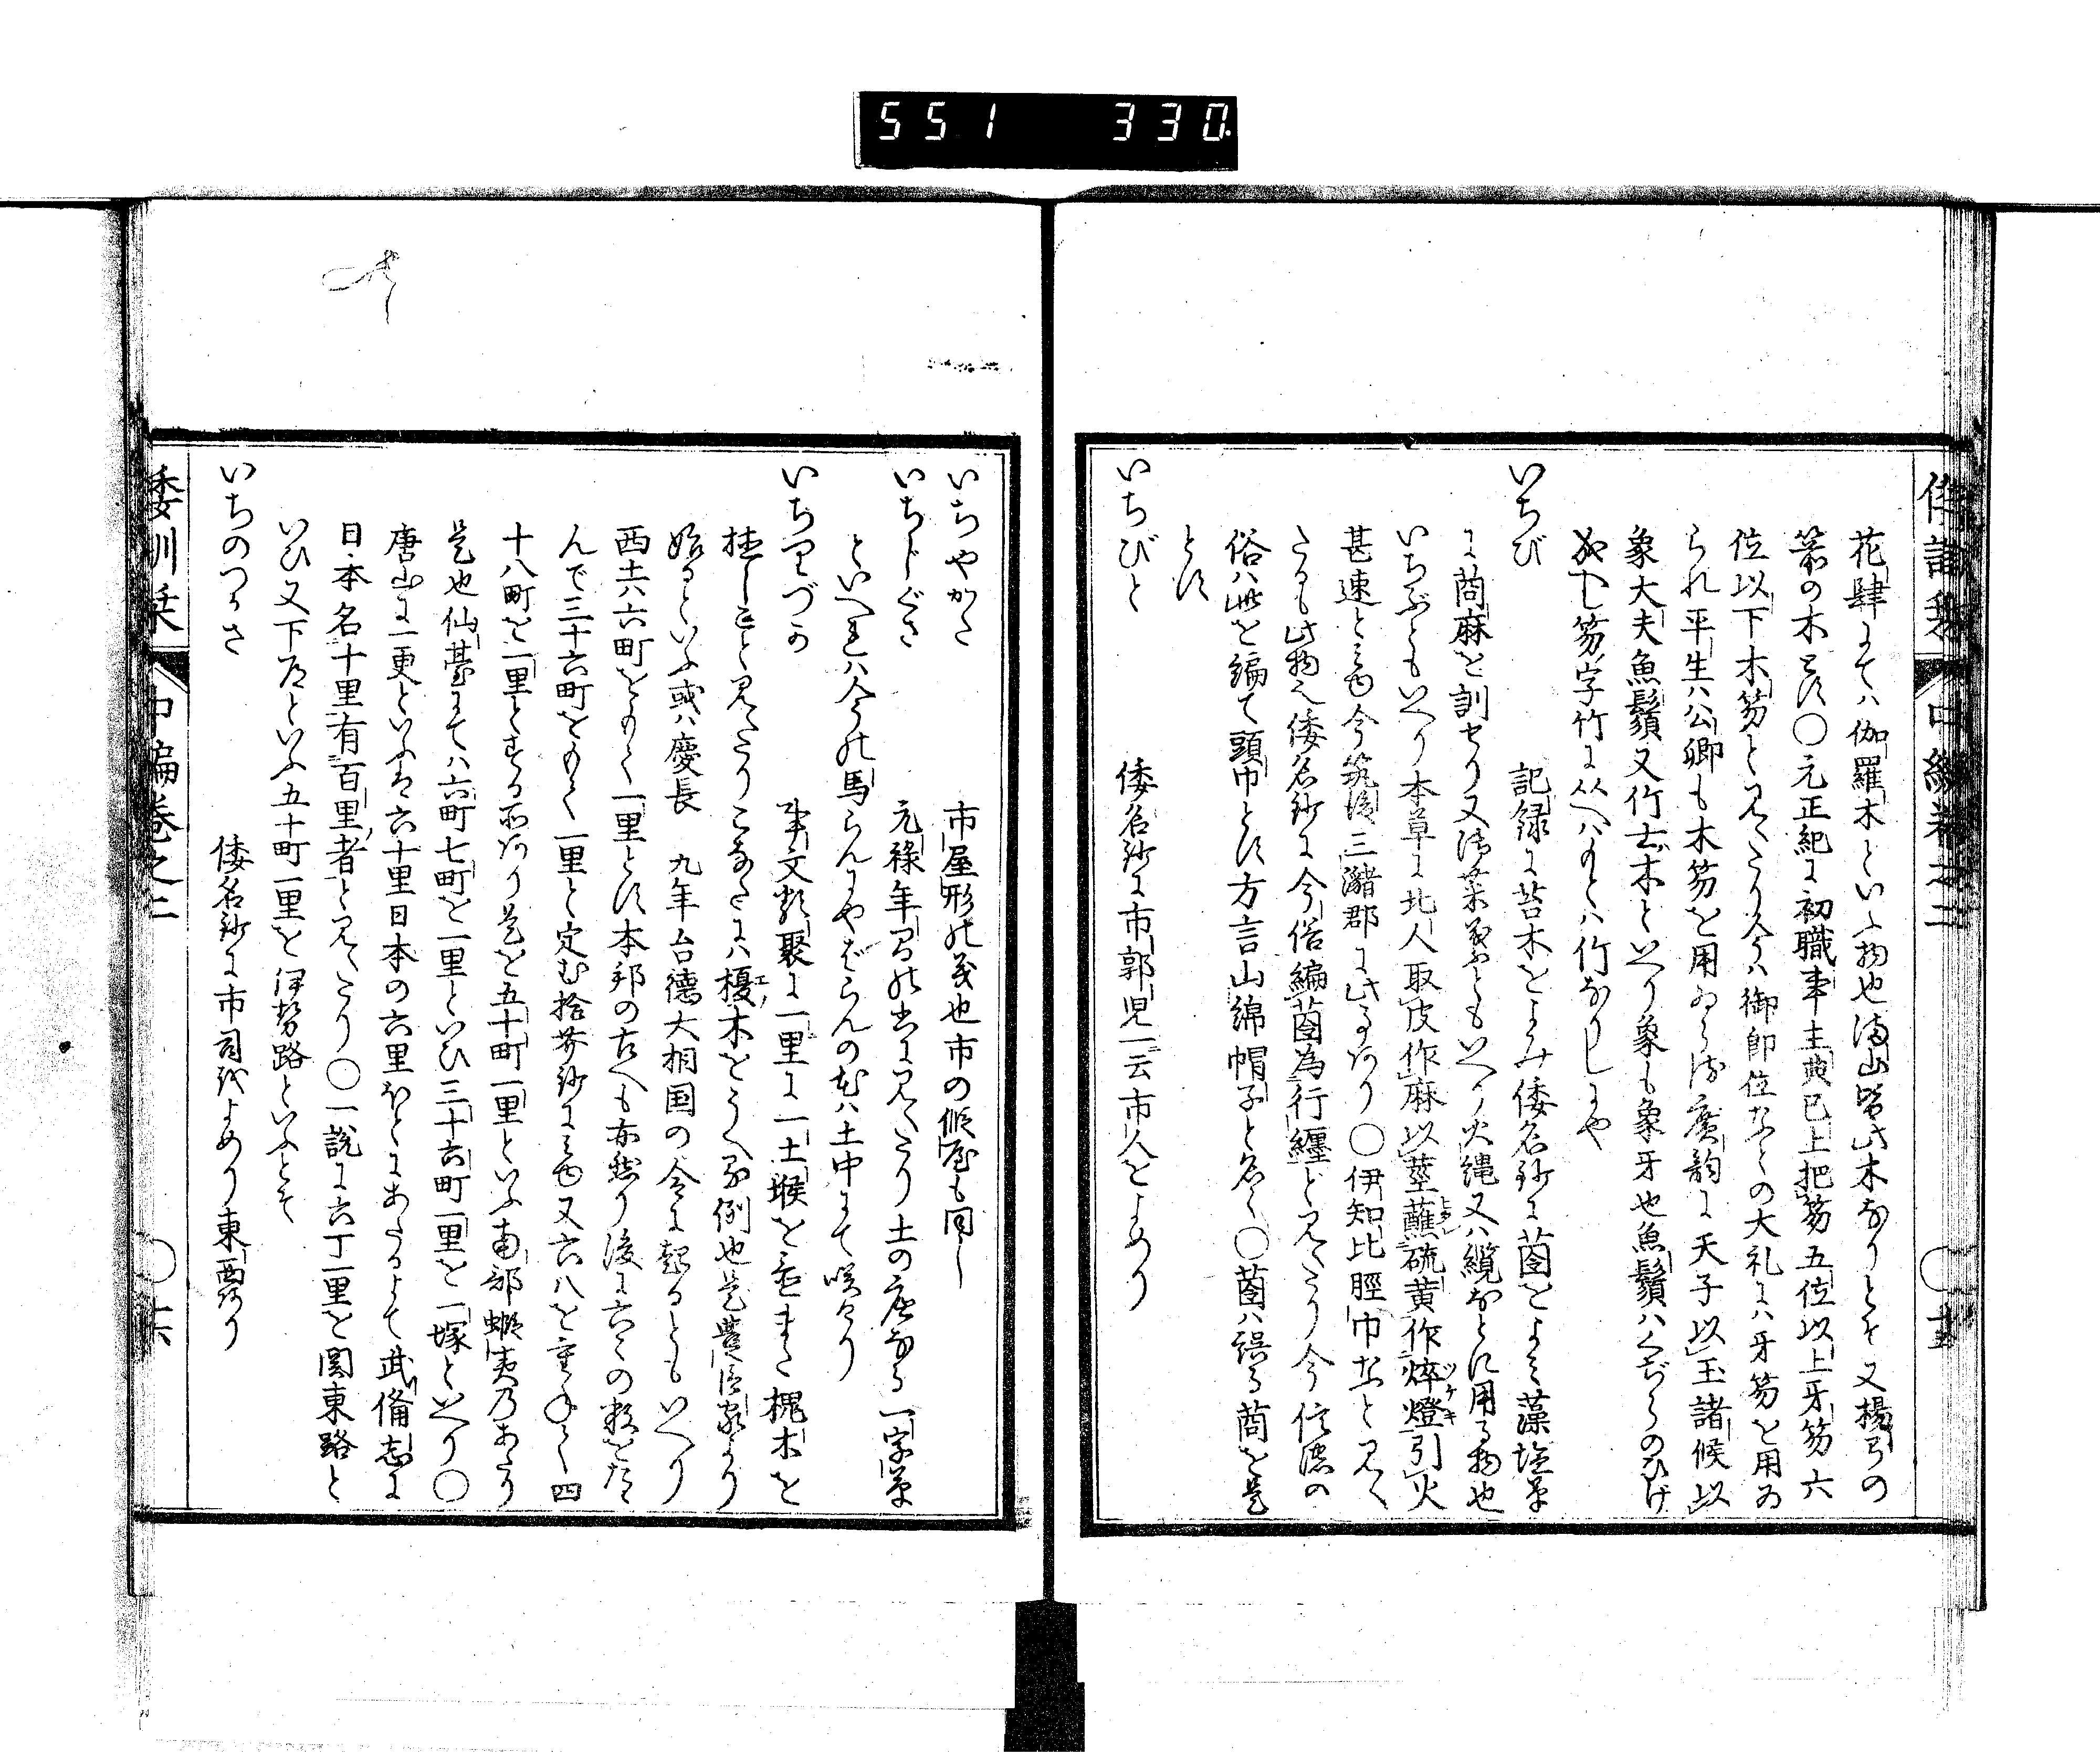 551 330
花肆にては伽羅木といふ物也満山皆此木なりとそ又楊弓の
箭の木とす〇元正紀に初職事主典已上把笏五位以上牙笏六
位以下木笏と見えたり久うは御即位なとの大礼には牙笏を用ゐ
られ平生は公卿も木笏を用ゐらる廣韵に天子以玉諸候以
象大夫魚鬚又竹士木といへり象も象牙也魚鬚はくぢらのひげ
笏字竹に从へはもとは竹なりしにや
いちび 記録に苔木とよみ倭名鈔に䔛をよみ藻塩草
に䔛麻を訓せり又ともいへり火縄又は纜なとに用る物也
いちぶともいへり本草に北人取皮作麻以莖蘸硫黄作焠燈引火
甚速とみゆ今筑後三瀦郡に此あり〇伊知比脛巾なと見え
たるも此物也倭名鈔に今俗編䔛為行纏と見えたり今信濃の
俗は此を編て頭巾とす方言山綿帽子と名く〇䔛は誤る䔛を是
とす
いちびと 倭名鈔に市郭児一云市人をよめり
いちやかた 市屋形の義也市の假屋も同し
いちじぐさ 元禄年間の書に見えたり土の産なる一字草
といへるは今の馬らんにやばらんの花は土中にて咲けり
いちりづか 事文類聚に一里に一土堠を置また槐木を
植しことと見えたりこなたには榎木をうへる例也是豊臣家より
始るといふ或は慶長 九年台徳大相国の令に起るともいへり
西土六六町をもて一里とす本邦の古へも亦然り後に六六の数をたゝ
んで三十六町をもて一里と定む拾芥鈔にみゆ又六八を重ねて四
十八町を一里とする所あり是を五十町一里といふ南部蝦夷乃あたり
是也仙臺にては六町七町を一里といひ三十六町一里を一塚といへり〇
唐山に一更といふは六十里日本の六里ほとにあたるよて武備志に
日本名十里有百里者と見えたり〇一説に六丁一里を関東路と
いひ又下道といふ五十町一里を伊勢路といふとそ
いちのつかさ 倭名鈔に市司をよめり東西あり
倭訓栞 中編巻之二 〇十六